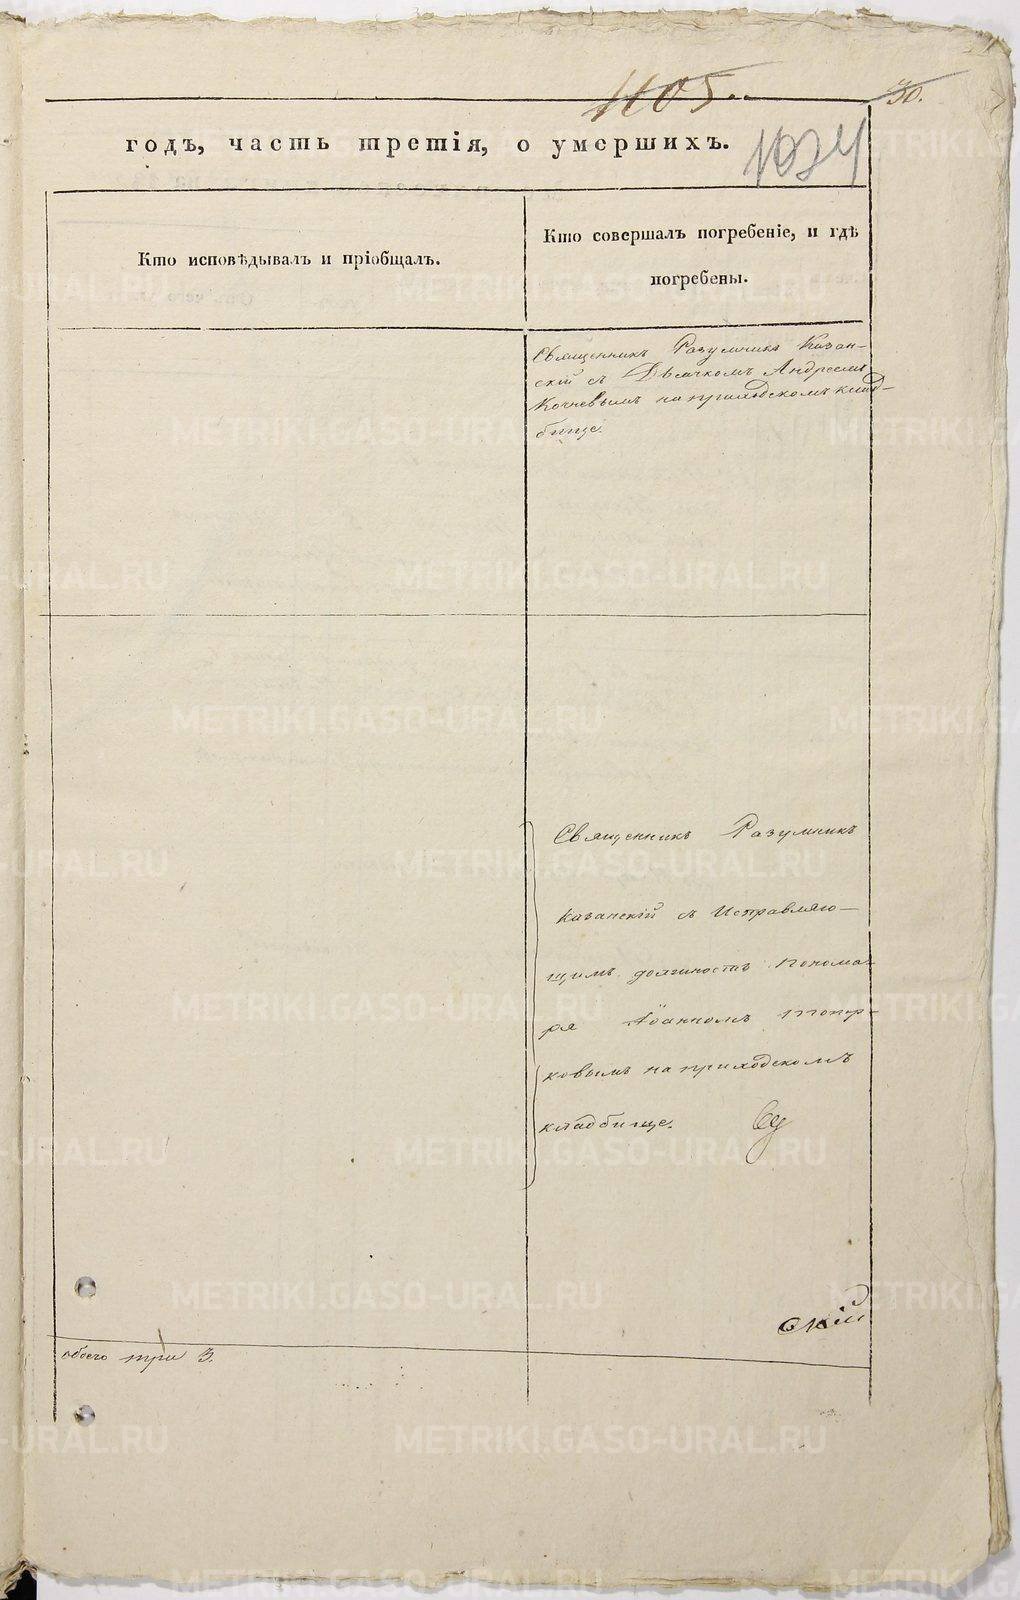 1105.
30.
годъ, часть третія, о умершихъ.
1034
Кто исповѣдывалъ и пріобщалъ.
Кто совершалъ погребеніе, и гдѣ
погребены.
Священникъ Разумникъ Казан-
скій съ Дьячкомъ Андреемъ
Кочневымъ на приходскомъ клад-
бище.
Священникъ Разумникъ
Казанскій съ Исправляю-
щимъ должность Понома-
ря Іоанномъ
ковымъ на приходскомъ
кладбище.
скій
всего три 3.
METRIKI.GASO-URAL.RU